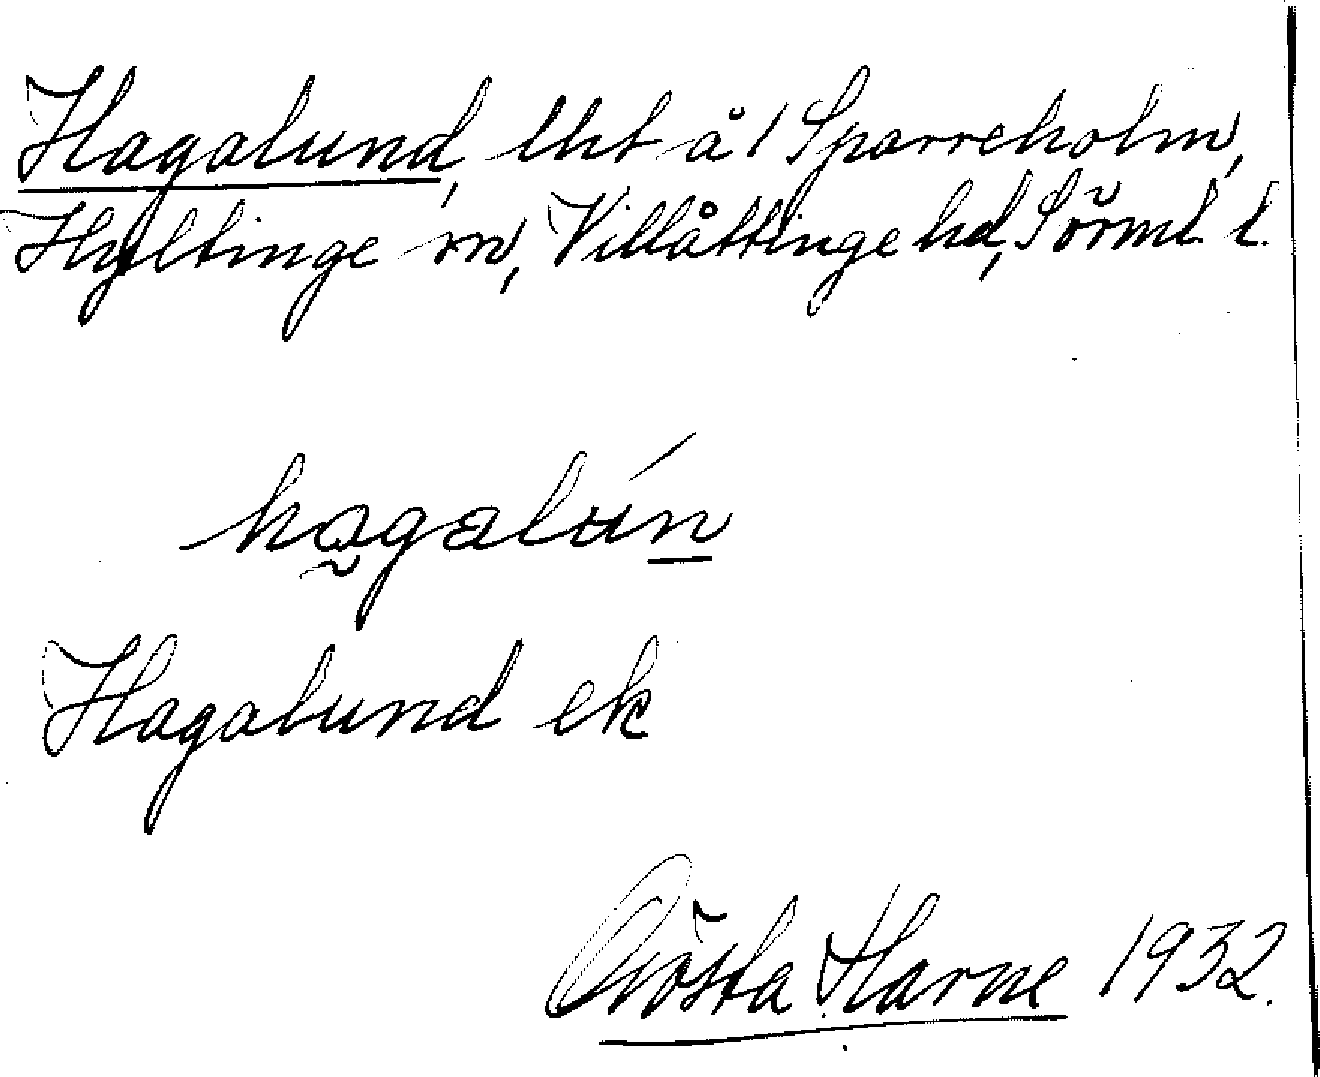 Hagalund, lht å 1 Sparreholm,
Hyltinge sn, Villåttinge hd, Sörml. l.
hagalún
Hagalund ek
Gösta Harne 1932.